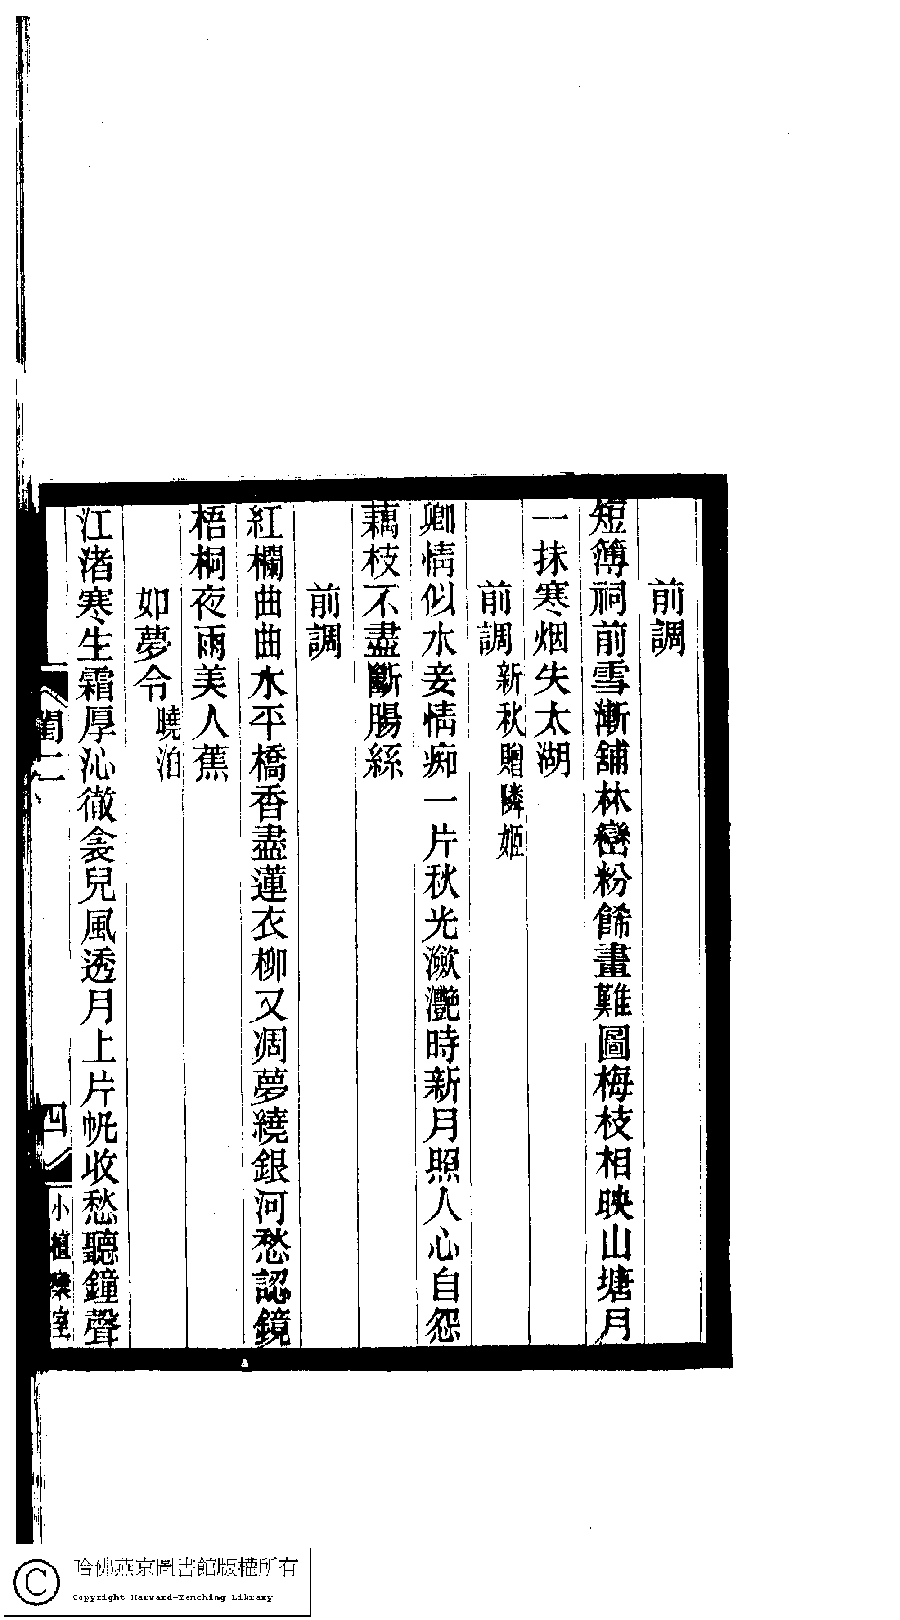 前調
短簿祠前雪漸舖林巒粉飾畫難圖梅枝相映山塘月
一抹寒烟失太湖
前調 新秋贈隣姬
卿情似水妾情痴一片秋光瀲灧時新月照人心自怨
藕枝不盡斷腸絲
前調
紅欄曲曲水平橋香盡蓮衣柳又凋夢繞銀河愁認鏡
梧桐夜雨美人蕉
如夢令 曉泊
江渚寒生霜厚沁徹衾兒風透月上片帆收愁聽鐘聲
閨二
四
小檀欒室
哈佛燕京圖書館版權所有
Copyright Harvard-Yenching Library